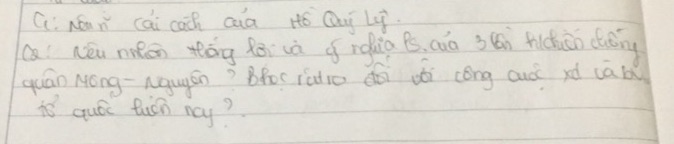 C1: Nêu n² cải cách của Hồ Quý Lý.
C2: Nêu nhân thắng lợi và ý nghĩa ls. của 3 lần k/chiến chống
quân Mông - Nguyên? Bhọc rút ra đối với công cuộc xd và bv
tổ quốc hiện nay?